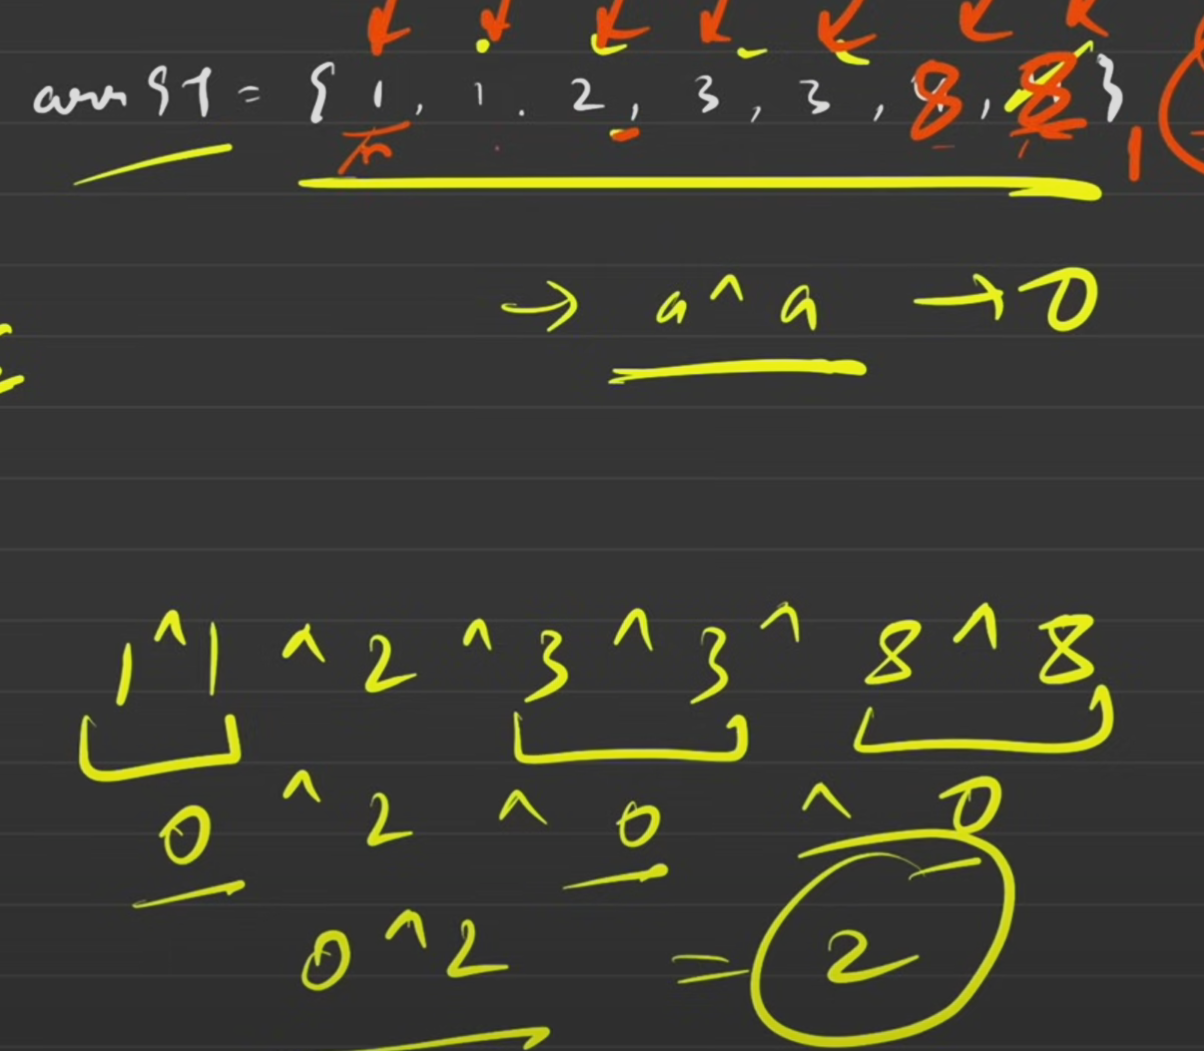 arr[] = { 1, 1, 2, 3, 3, 8, 8 }
→ a ^ a → 0
1 ^ 1 ^ 2 ^ 3 ^ 3 ^ 8 ^ 8
0 ^ 2 ^ 0 ^ 0
0 ^ 2 = 2